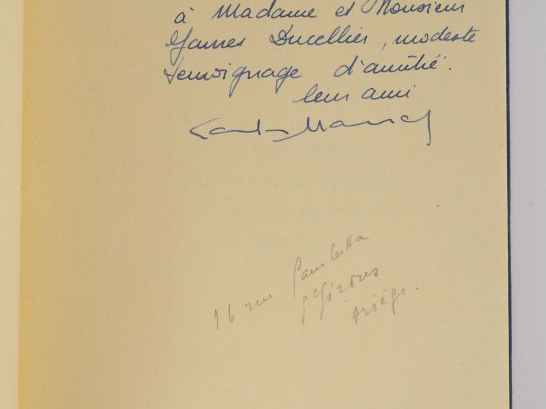 à Madame et Monsieur
James Ducellier, modeste
témoignage d'amitié.
leur ami
16 rue Gambetta
St Girons
Ariège.